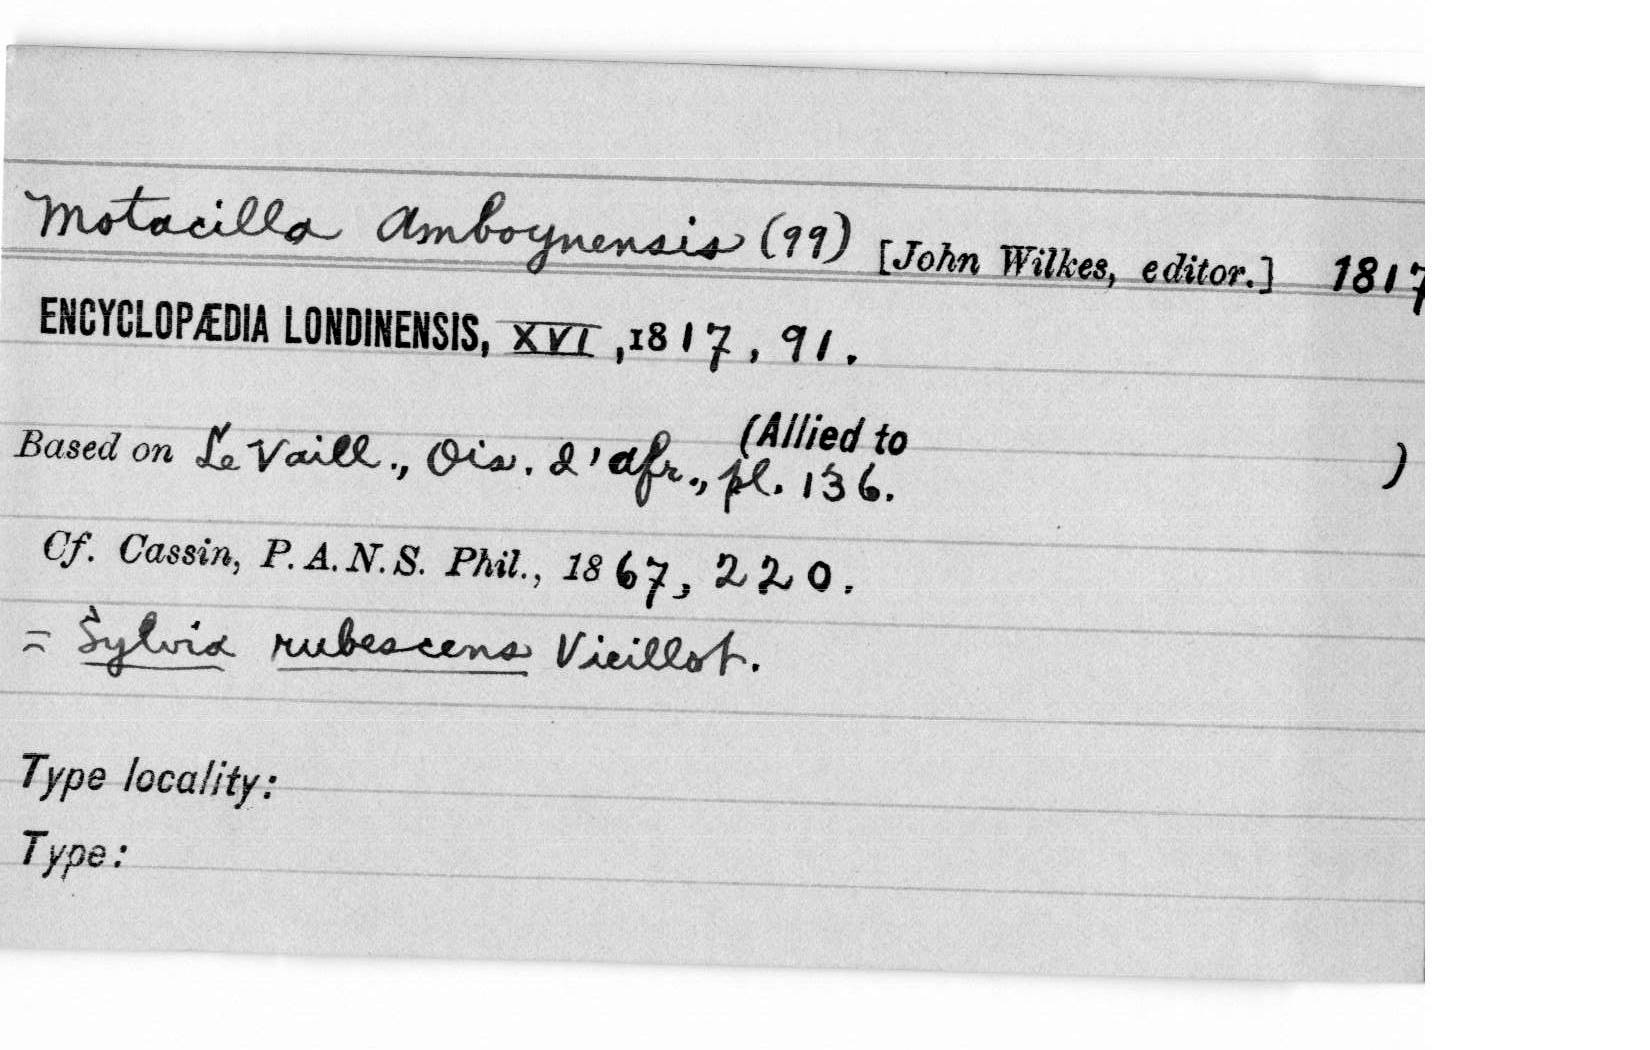 Motacilla Amboynensis (99) [John Wilkes, editor.] 1817
ENCYCLOPÆDIA LONDINENSIS, XVI, 1817, 91.
(Allied to )
Based on Le Vaill., Ois. d'afr., pl. 136.
Cf. Cassin, P. A. N. S. Phil., 1867, 220.
= Sylvia rubescens Vieillot.
Type locality:
Type: